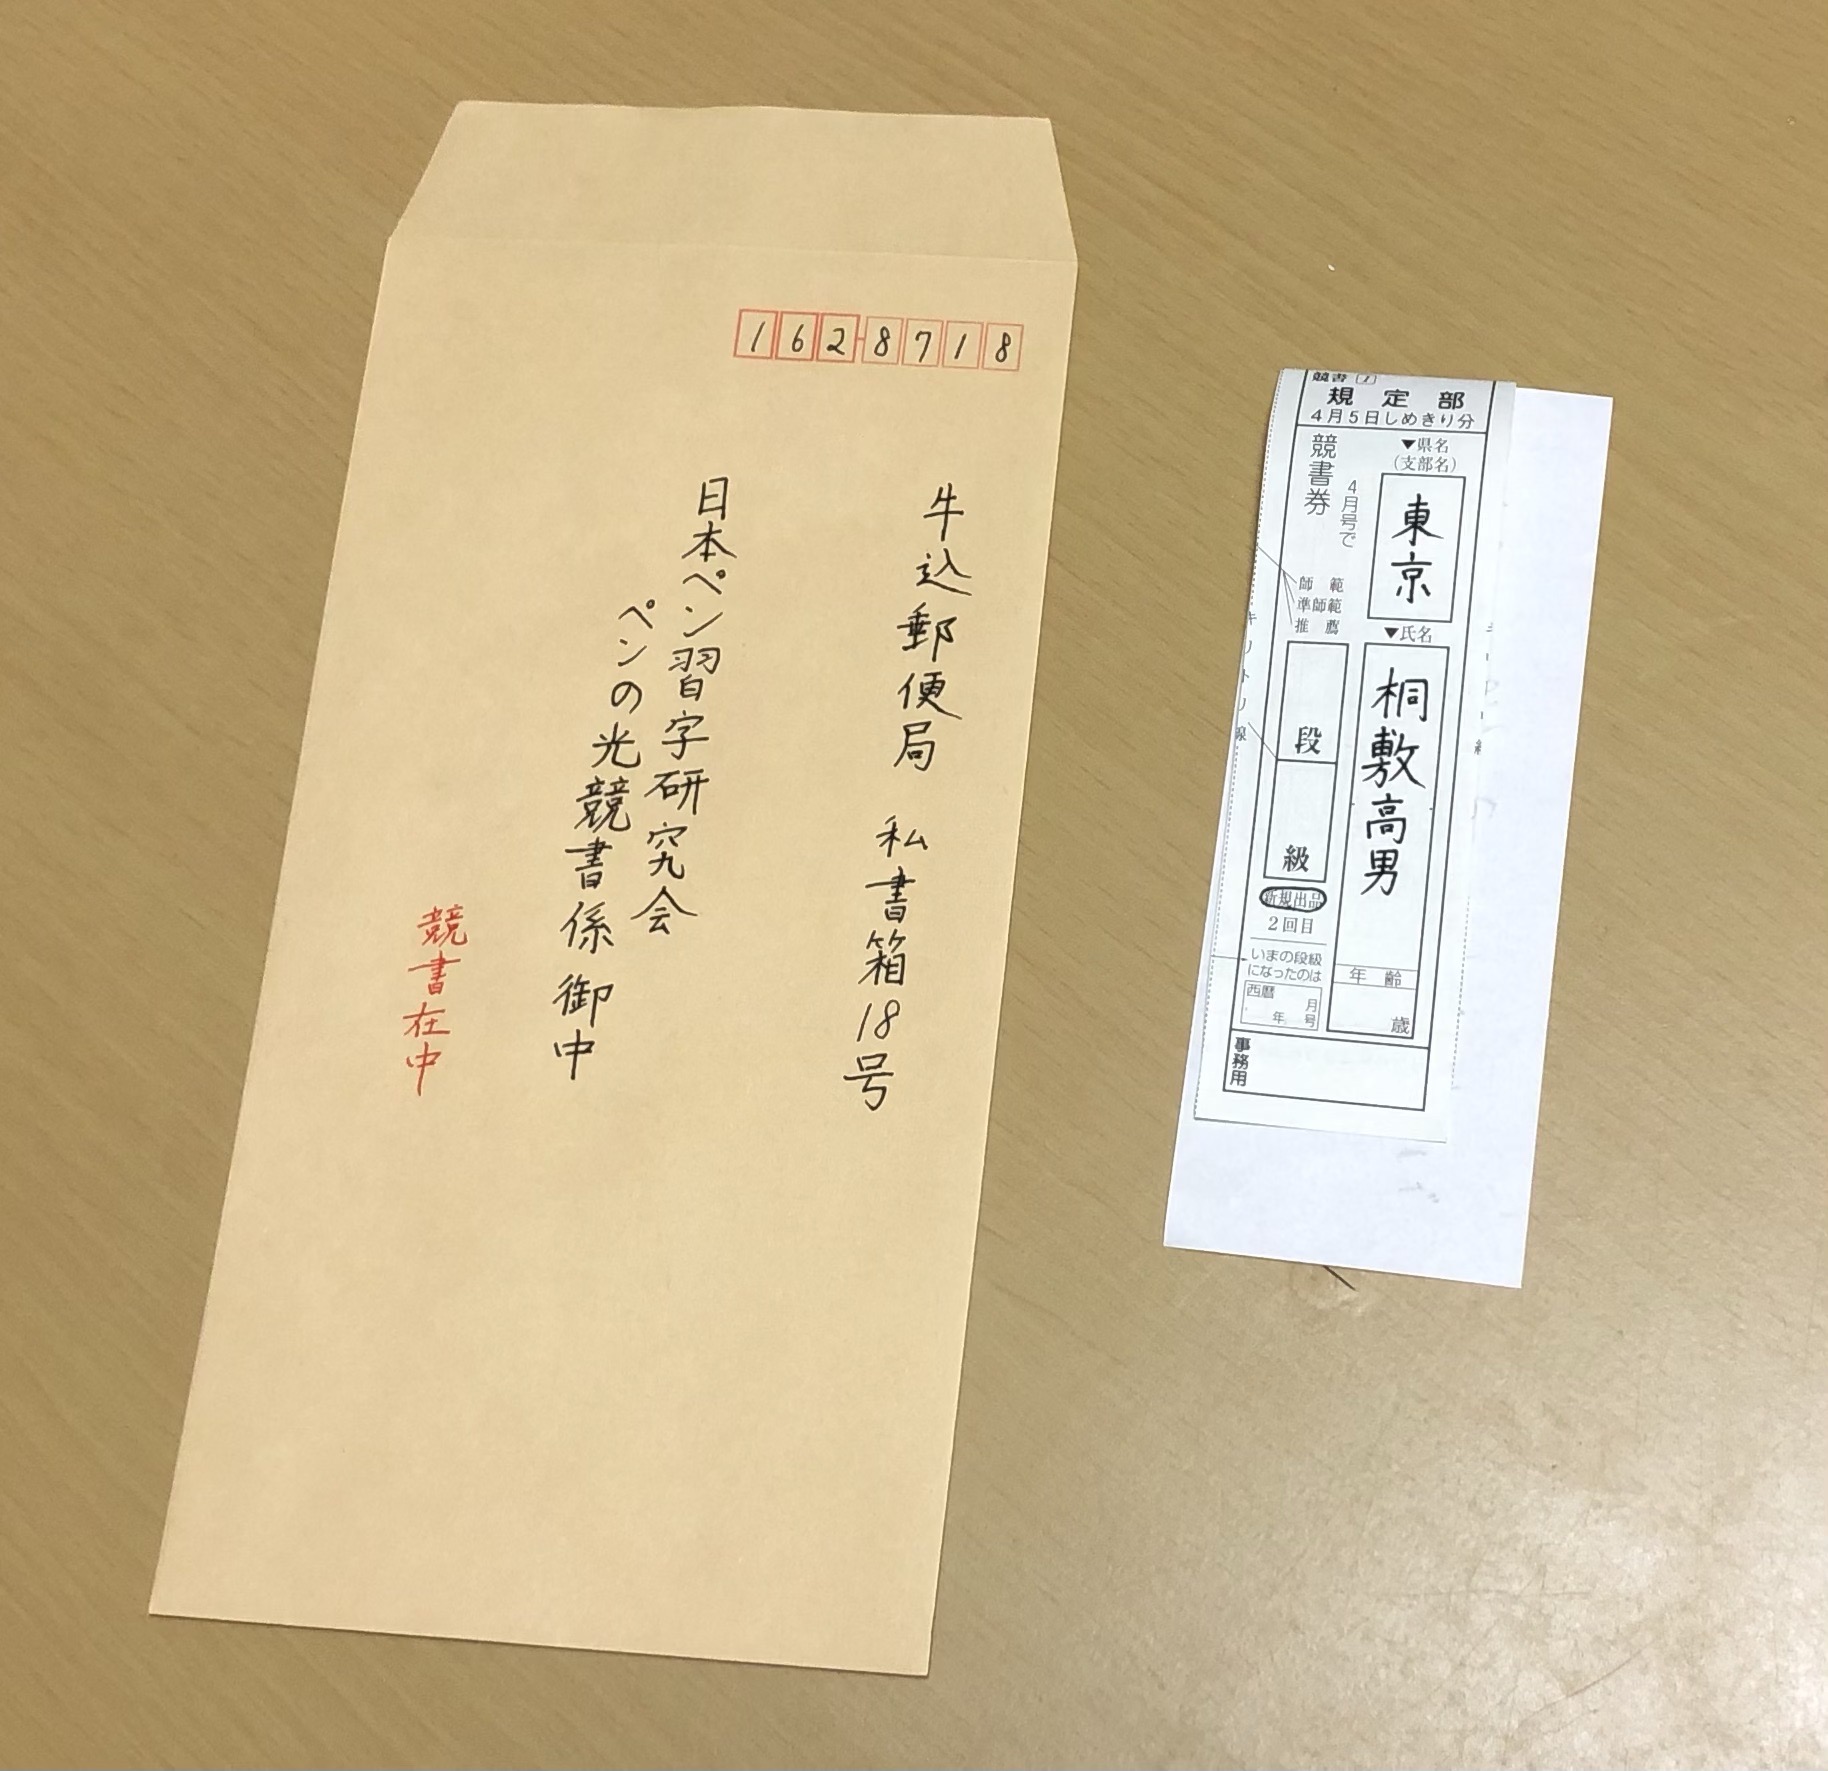 1628718
牛込郵便局 私書箱18号
日本ペン習字研究会
ペンの光競書係 御中
競書在中
競書
規定部
4月5日しめきり分
▼県名
(支部名)
東京
▼氏名
桐敷高男
年齢
歳
競書券
4月号で
師範
準師範
推薦
段
級
新規出品
2回目
いまの段級
になったのは
西暦
年
月
号
事務用
キリトリ線